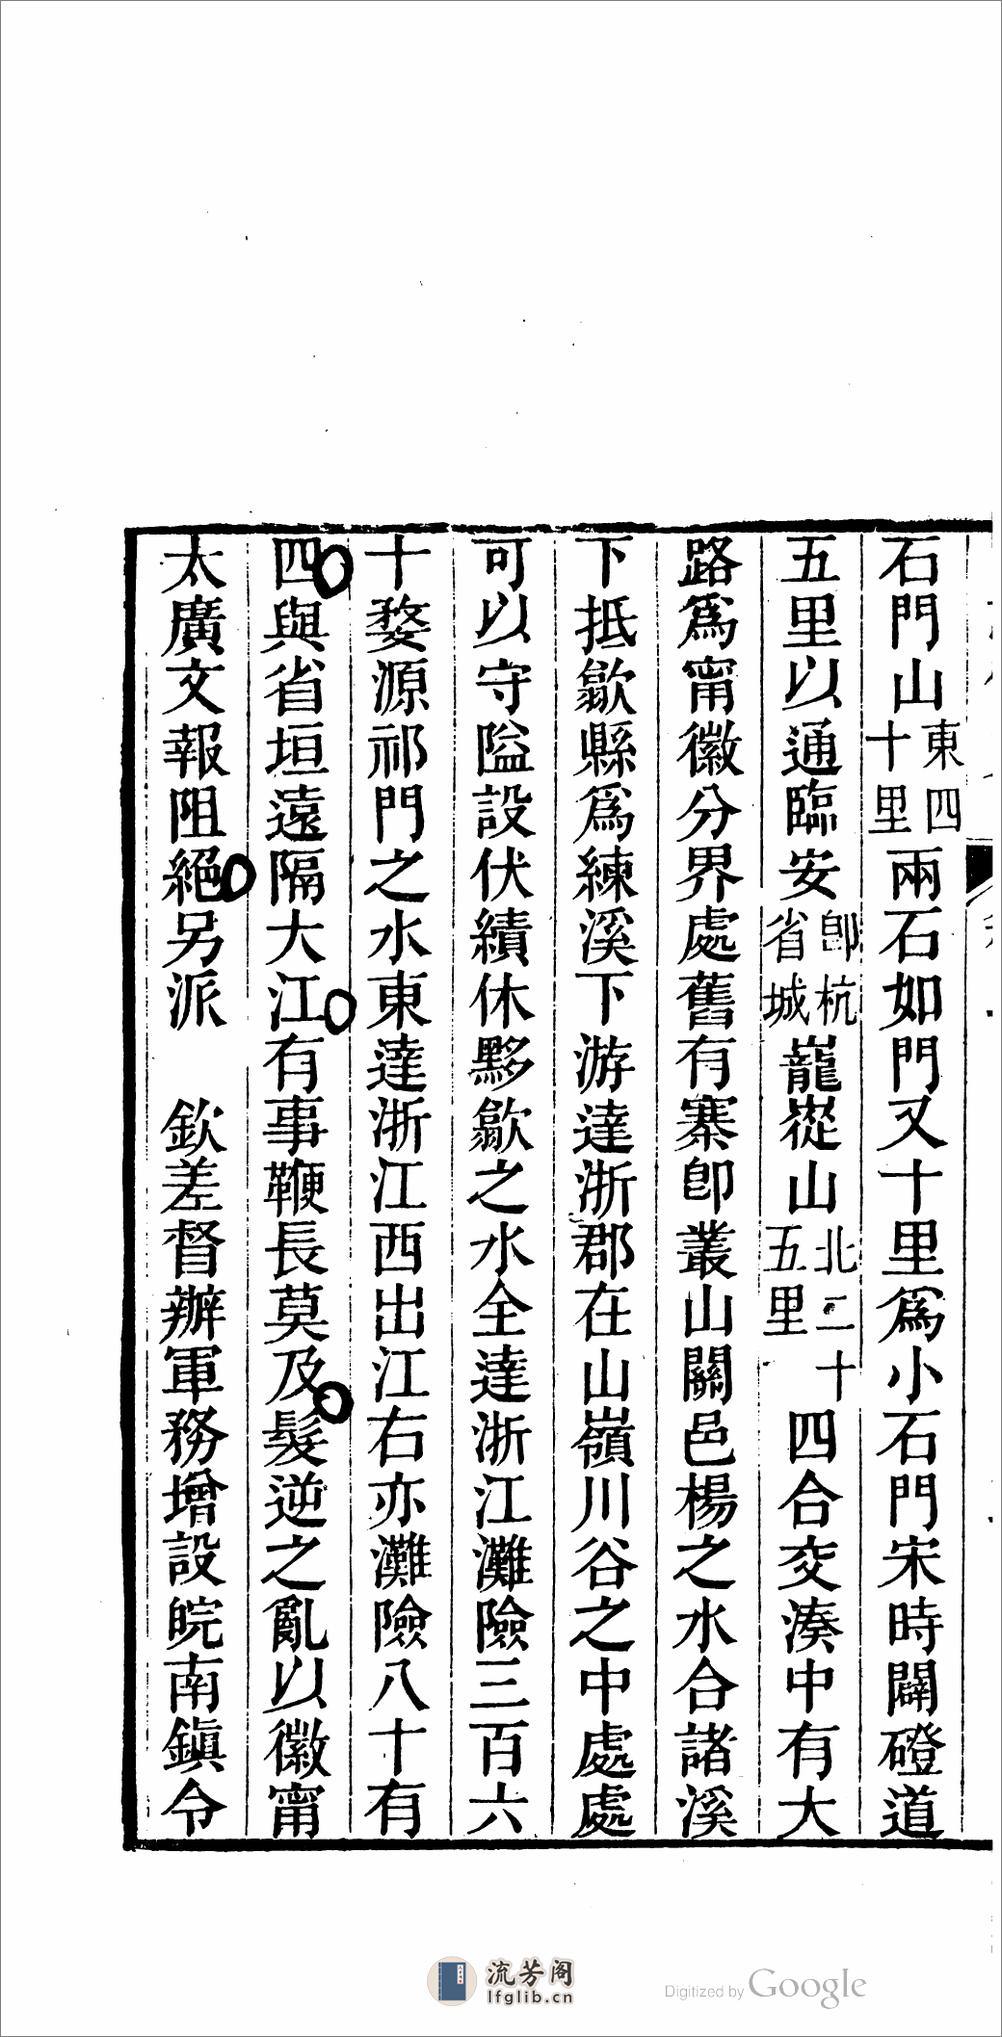 石門山東四十里兩石如門又十里爲小石門宋時闢磴道
五里以通臨安卽杭省城巃嵸山北二十五里四合交湊中有大
路爲甯徽分界處舊有寨卽叢山關邑楊之水合諸溪
下抵歙縣爲練溪下游達浙郡在山嶺川谷之中處處
可以守隘設伏績休黟歙之水全達浙江灘險三百六
十婺源祁門之水東達浙江西出江右亦灘險八十有
四與省垣遠隔大江有事鞭長莫及髮逆之亂以徽甯
太廣文報阻絕另派　欽差督辦軍務增設皖南鎭令
流芳阁
lfglib.cn
Digitized by Google